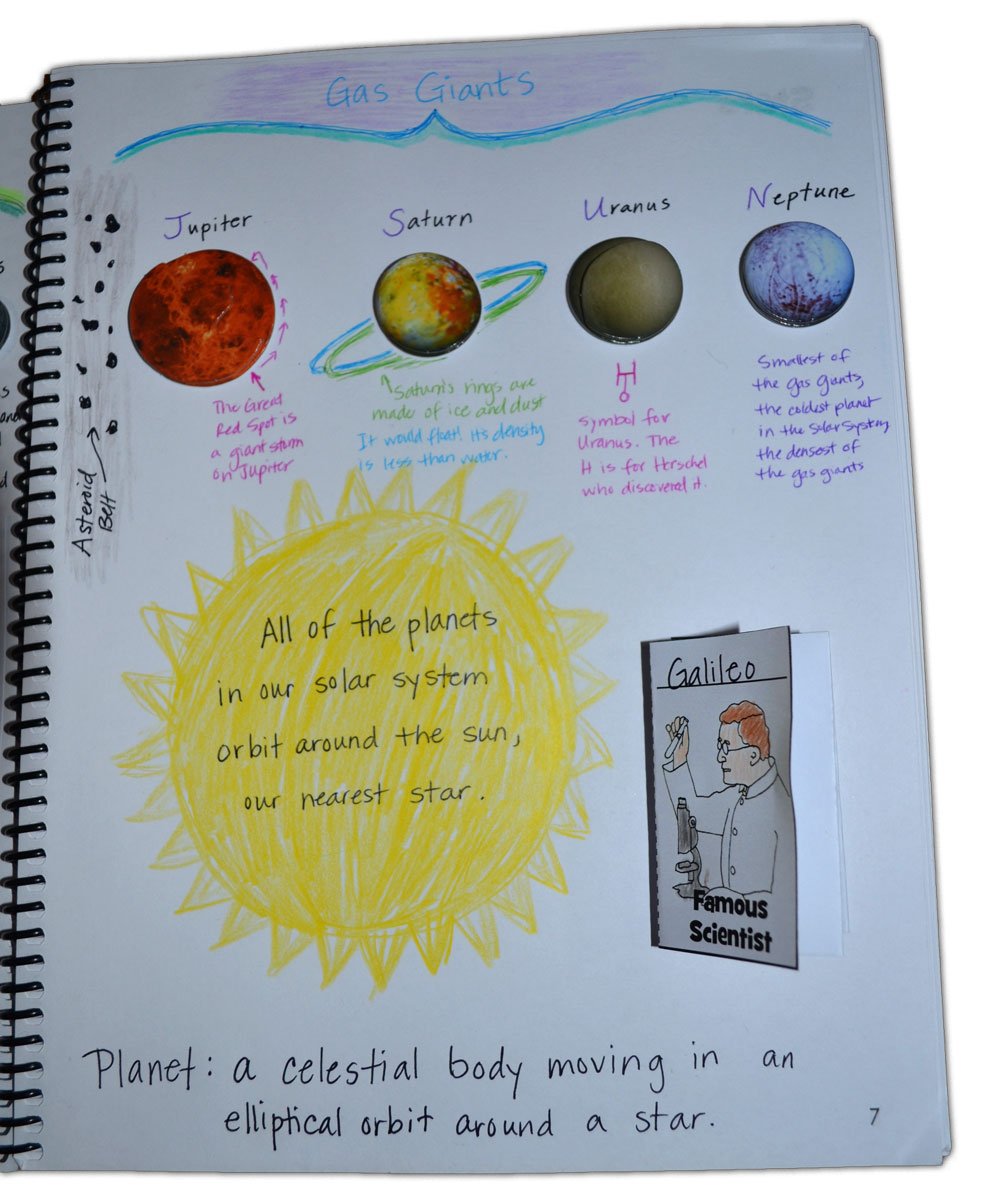 Gas Giants
Jupiter
Saturn
Uranus
Neptune
The Great
Red Spot is
a giant storm
on Jupiter
Saturn's rings are
made of ice and dust
It would float! Its density
is less than water.
symbol for
Uranus. The
H is for Herschel
who discovered it.
Smallest of
the gas giants,
the coldest planet
in the solar system,
the densest of
the gas giants
Asteroid
Belt
All of the planets
in our solar system
orbit around the sun,
our nearest star.
Galileo
Famous
Scientist
Planet: a celestial body moving in an
elliptical orbit around a star.
7